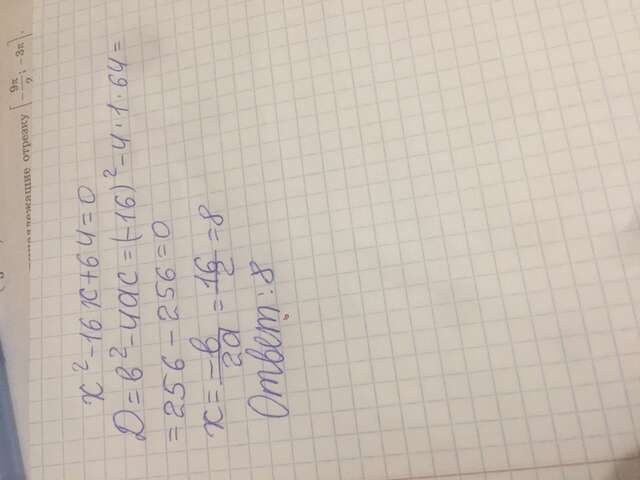 надлежащие отрезку [-9π/2; -3π].
x² - 16x + 64 = 0
D = в² - 4ac = (-16)² - 4 · 1 · 64 =
= 256 - 256 = 0
x = -в/2a = 16/2 = 8
Ответ: 8